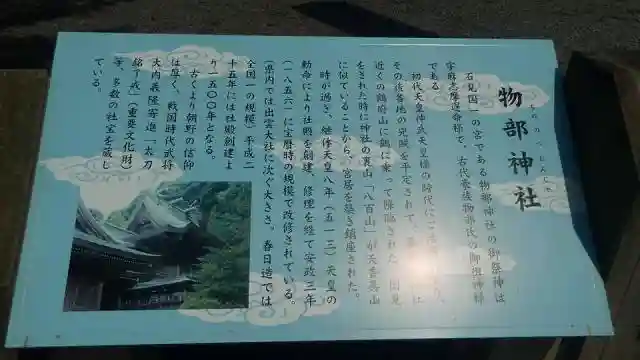 物部神社
もののべじんじゃ
石見国一の宮である物部神社の御祭神は
宇麻志摩遅命様で、古代豪族物部氏の御祖神様
である。
初代天皇神武天皇様の時代にご活
その後各地の兇賊を平定されて、
近くの鶴府山に鶴に乗って降臨された。国見
をされた時に神社の裏山「八百山」が天香具山
に似ていることから、宮居を築き鎮座された。
時が過ぎ、継体天皇八年(五一三)天皇の
勅命により社殿を創建、修理を経て安政三年
(一八五六)に宝暦時の規模で改修されている。
(県内では出雲大社に次ぐ大きさ。春日造では
全国一の規模)平成二
十五年には社殿創建よ
り一五〇〇年となる。
古くより朝野の信仰
は厚く、戦国時代武将
大内義隆寄進「太刀
銘了戒」(重要文化財)
等、多数の社宝を蔵し
ている。